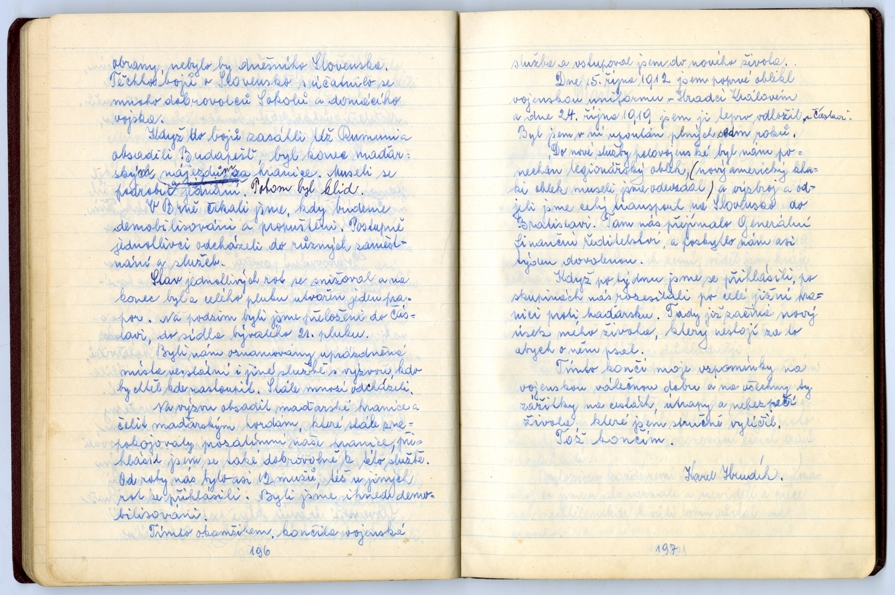 obrany, nebylo by dnešního Slovenska.
Těchto bojů o Slovensko súčastnilo se
mnoho dobrovolců Sokolů a domácího
vojska.
Když do bojů zasáhli též Rumuni a
obsadili Budapešť, byl konec maďar=
ským nájezdům za hranice. Museli se
podrobit a jednání. Potom byl klid.
V Brně čekali jsme, kdy budeme
demobilisováni a propuštěni. Postupně
jednotlivci odcházeli do různých zaměst=
nání a služeb.
Stav jednotlivých rot se snižoval a na
konec byl z celého pluku utvořen jeden pra=
por. Na podzim byli jsme přeloženi do Čás=
lavi, do sídla bývalého 21. pluku.
Byli nám oznamovány uprázdněná
místa ve státní i jiné službě s výzvou, kdo
by chtěl kde nastoupit. Stále mnozí odcházeli.
Na výzvu obsadit maďarské hranice a
čelit maďarským hordám, které stále zne=
pokojovaly pozatímní naše hranice, při=
hlásil jsem se také dobrovolně k této službě.
Od roty nás bylo asi 12 mužů, též u jiných
rot se přihlásili. Byli jsme ihned demo=
bilisováni.
Tímto okamžikem končila vojenská
196
služba a vstupoval jsem do nového života.
Dne 15. října 1912 jsem poprvé oblékl
vojenskou uniformu v Hradci Královém
a dne 24. října 1919 jsem ji teprv odložil v Čáslavi.
Byl jsem v ní upoután plných sedm roků.
Do nové služby polovojenské byl nám po=
nechán legionářský oblek, (nový americký hla=
ký oblek museli jsme odevzdat) a výstroj a od=
jeli jsme celý transport na Slovensko do
Bratislavi. Tam nás přejímalo Generální
finanční ředitelství, a poskytlo nám asi
týden dovolenou.
Když po týdnu jsme se přihlásili, po
skupinách nás rozesílali po celé jižní hra=
nici proti Maďarsku. Tady již začíná nový
úsek mého života, který nestojí za to
abych o něm psal.
Tímto končí moje vzpomínky na
vojenskou válečnou dobu a na všechny ty
zážitky na cestách, útrapy a nebezpečí
života které jsem stručně vylíčil.
Též končím.
Karel
197